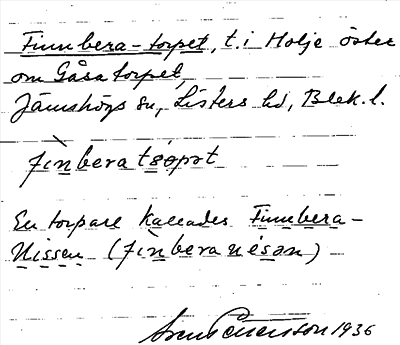 Finnbera-torpet, t. i Holje öster
om Gåsatorpet,
Jämshögs sn, Listers hd, Blek. l.
fìnberatsǫpət
En torpare kallades Finnbera-
Nissen (fìnberanisən)
Sven Benson 1936